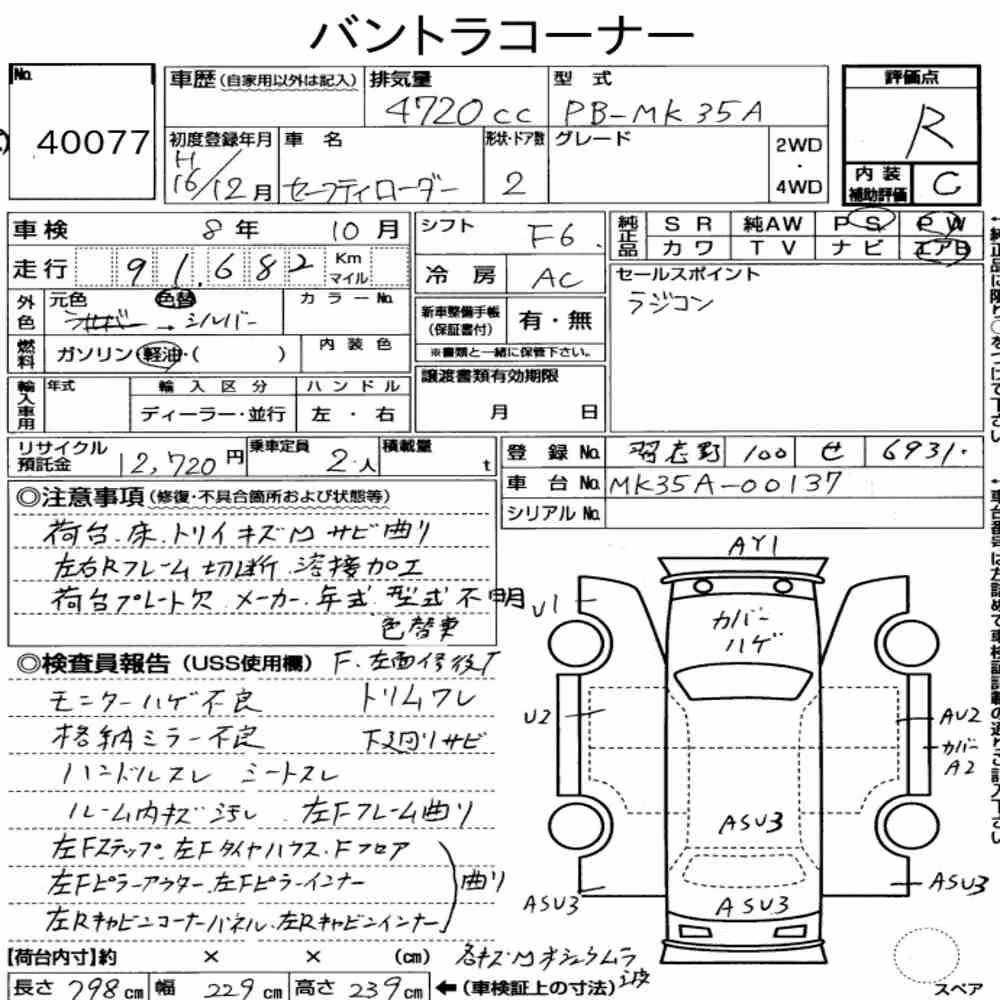 バントラコーナー
No.
40077
車歴 (自家用以外は記入)
排気量 4720cc
型式 PB-MK35A
評価点 R
初度登録年月 H16/12月
車名 セーフティローダー
形状・ドア数 2
グレード
2WD・4WD
内装補助評価 C
車検 8年 10月
シフト F6
純正品 SR 純AW PS PW
カワ TV ナビ エアB
走行 91,682 Km マイル
冷房 AC
セールスポイント
ラジコン
外色 元色 色替 カラーNo.
シルバー→シルバー
新車整備手帳(保証書付) 有・無
※書類と一緒に保管下さい。
燃料 ガソリン・軽油・( )
内装色
譲渡書類有効期限
月 日
輸入車用 年式 輸入区分 ハンドル
ディーラー・並行 左・右
リサイクル預託金 12,720円
乗車定員 2人
積載量 t
登録No. 習志野 100 せ 6931
車台No. MK35A-00137
シリアルNo.
◎注意事項 (修復・不具合箇所および状態等)
荷台.床.トリイキズMサビ曲り
左右Rフレーム切断.溶接加工
荷台プレート欠 メーカー.年式.型式不明
色替車
◎検査員報告 (USS使用欄) F.左面修後T
モニターハゲ不良 トリムワレ
格納ミラー不良 下廻りサビ
ハンドルスレ シートスレ
ルーム内キズ汚れ.左Fフレーム曲り
左Fステップ.左Fタイヤハウス.Fフロア
左Fピラーアウター.左Fピラーインナー 曲り
左Rキャビンコーナーパネル.左Rキャビンインナー
AY1
U1
カバーハゲ
U2
AU2
カバーA2
ASU3
ASU3
ASU3
ASU3
【荷台内寸】約 × × (cm)
各キズM
長さ 798cm 幅 229cm 高さ 239cm ←(車検証上の寸法)
スペア